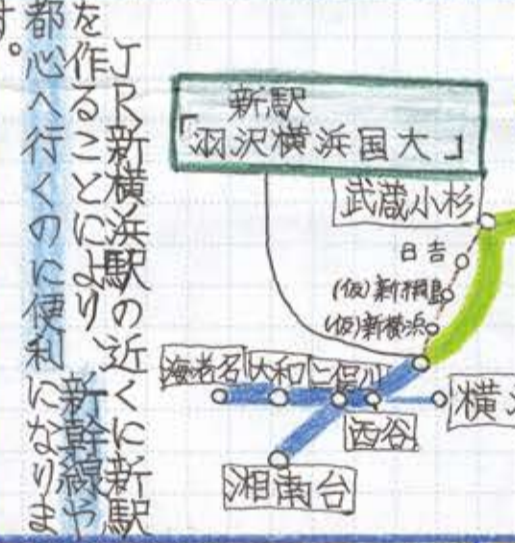 JR新横浜駅の近くに新駅
を作ることにより、新幹線や
都心へ行くのに便利になりま
す。
新駅
「羽沢横浜国大」
武蔵小杉
日吉
(仮)新綱島
(仮)新横浜
海老名
大和
二俣川
西谷
横
湘南台